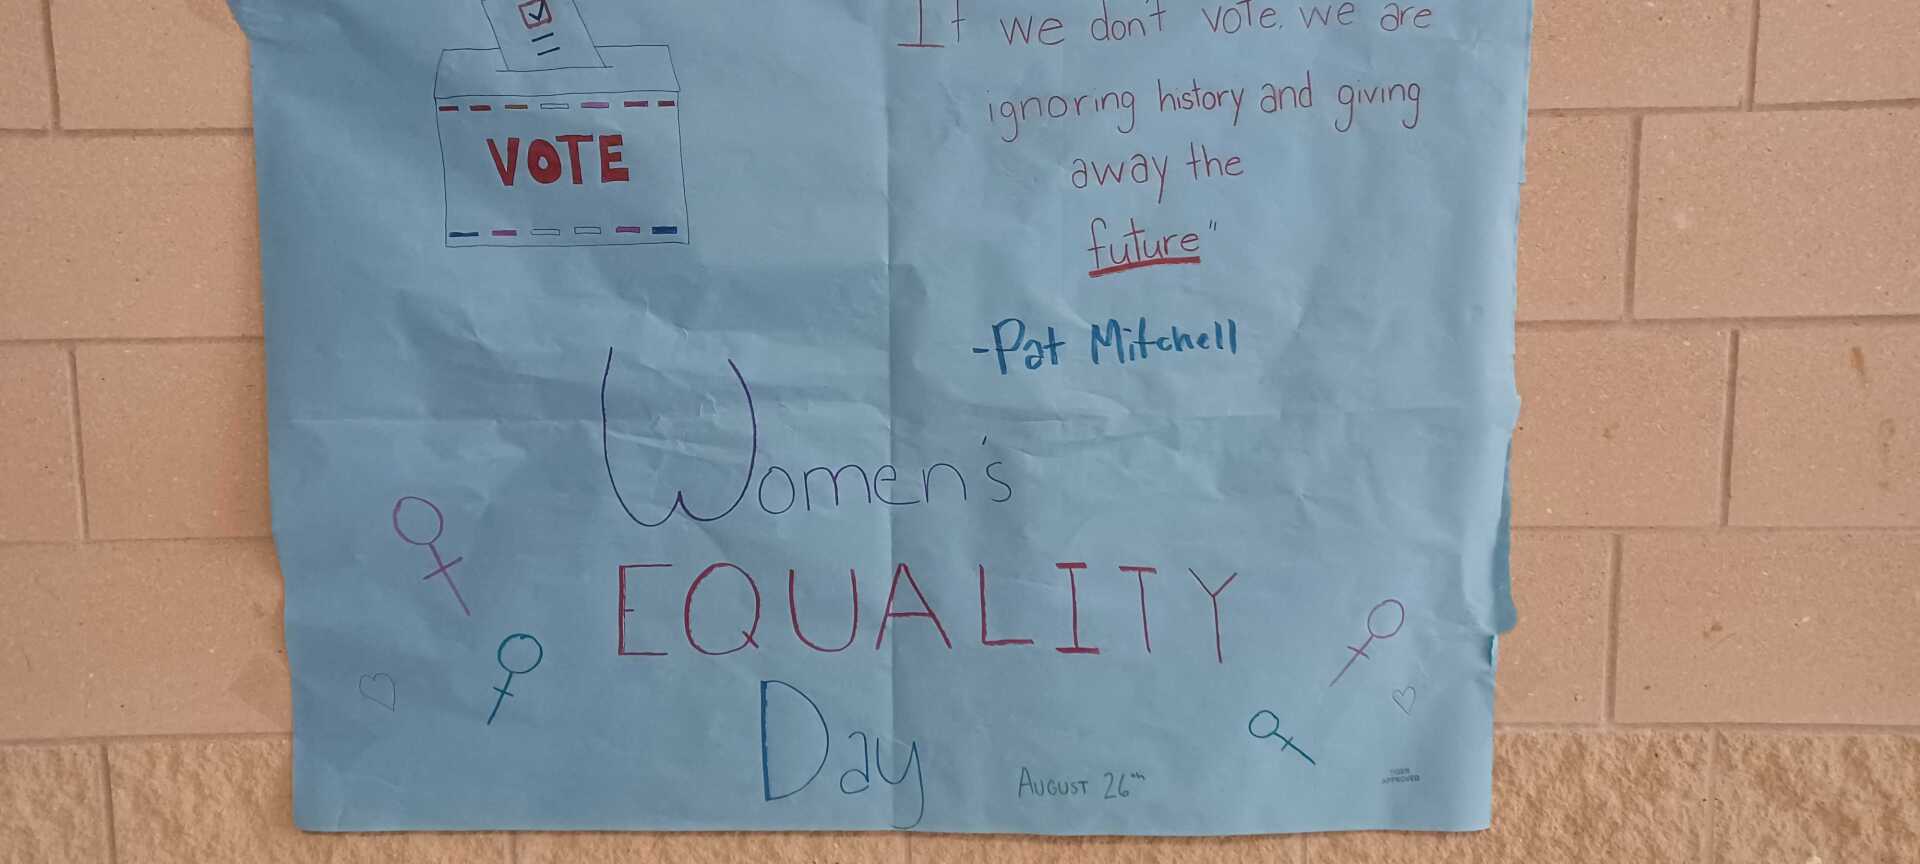 VOTE
If we don't vote. we are
ignoring history and giving
away the
future"
-Pat Mitchell
Women's
EQUALITY
Day
AUGUST 26th
TIGER
APPROVED